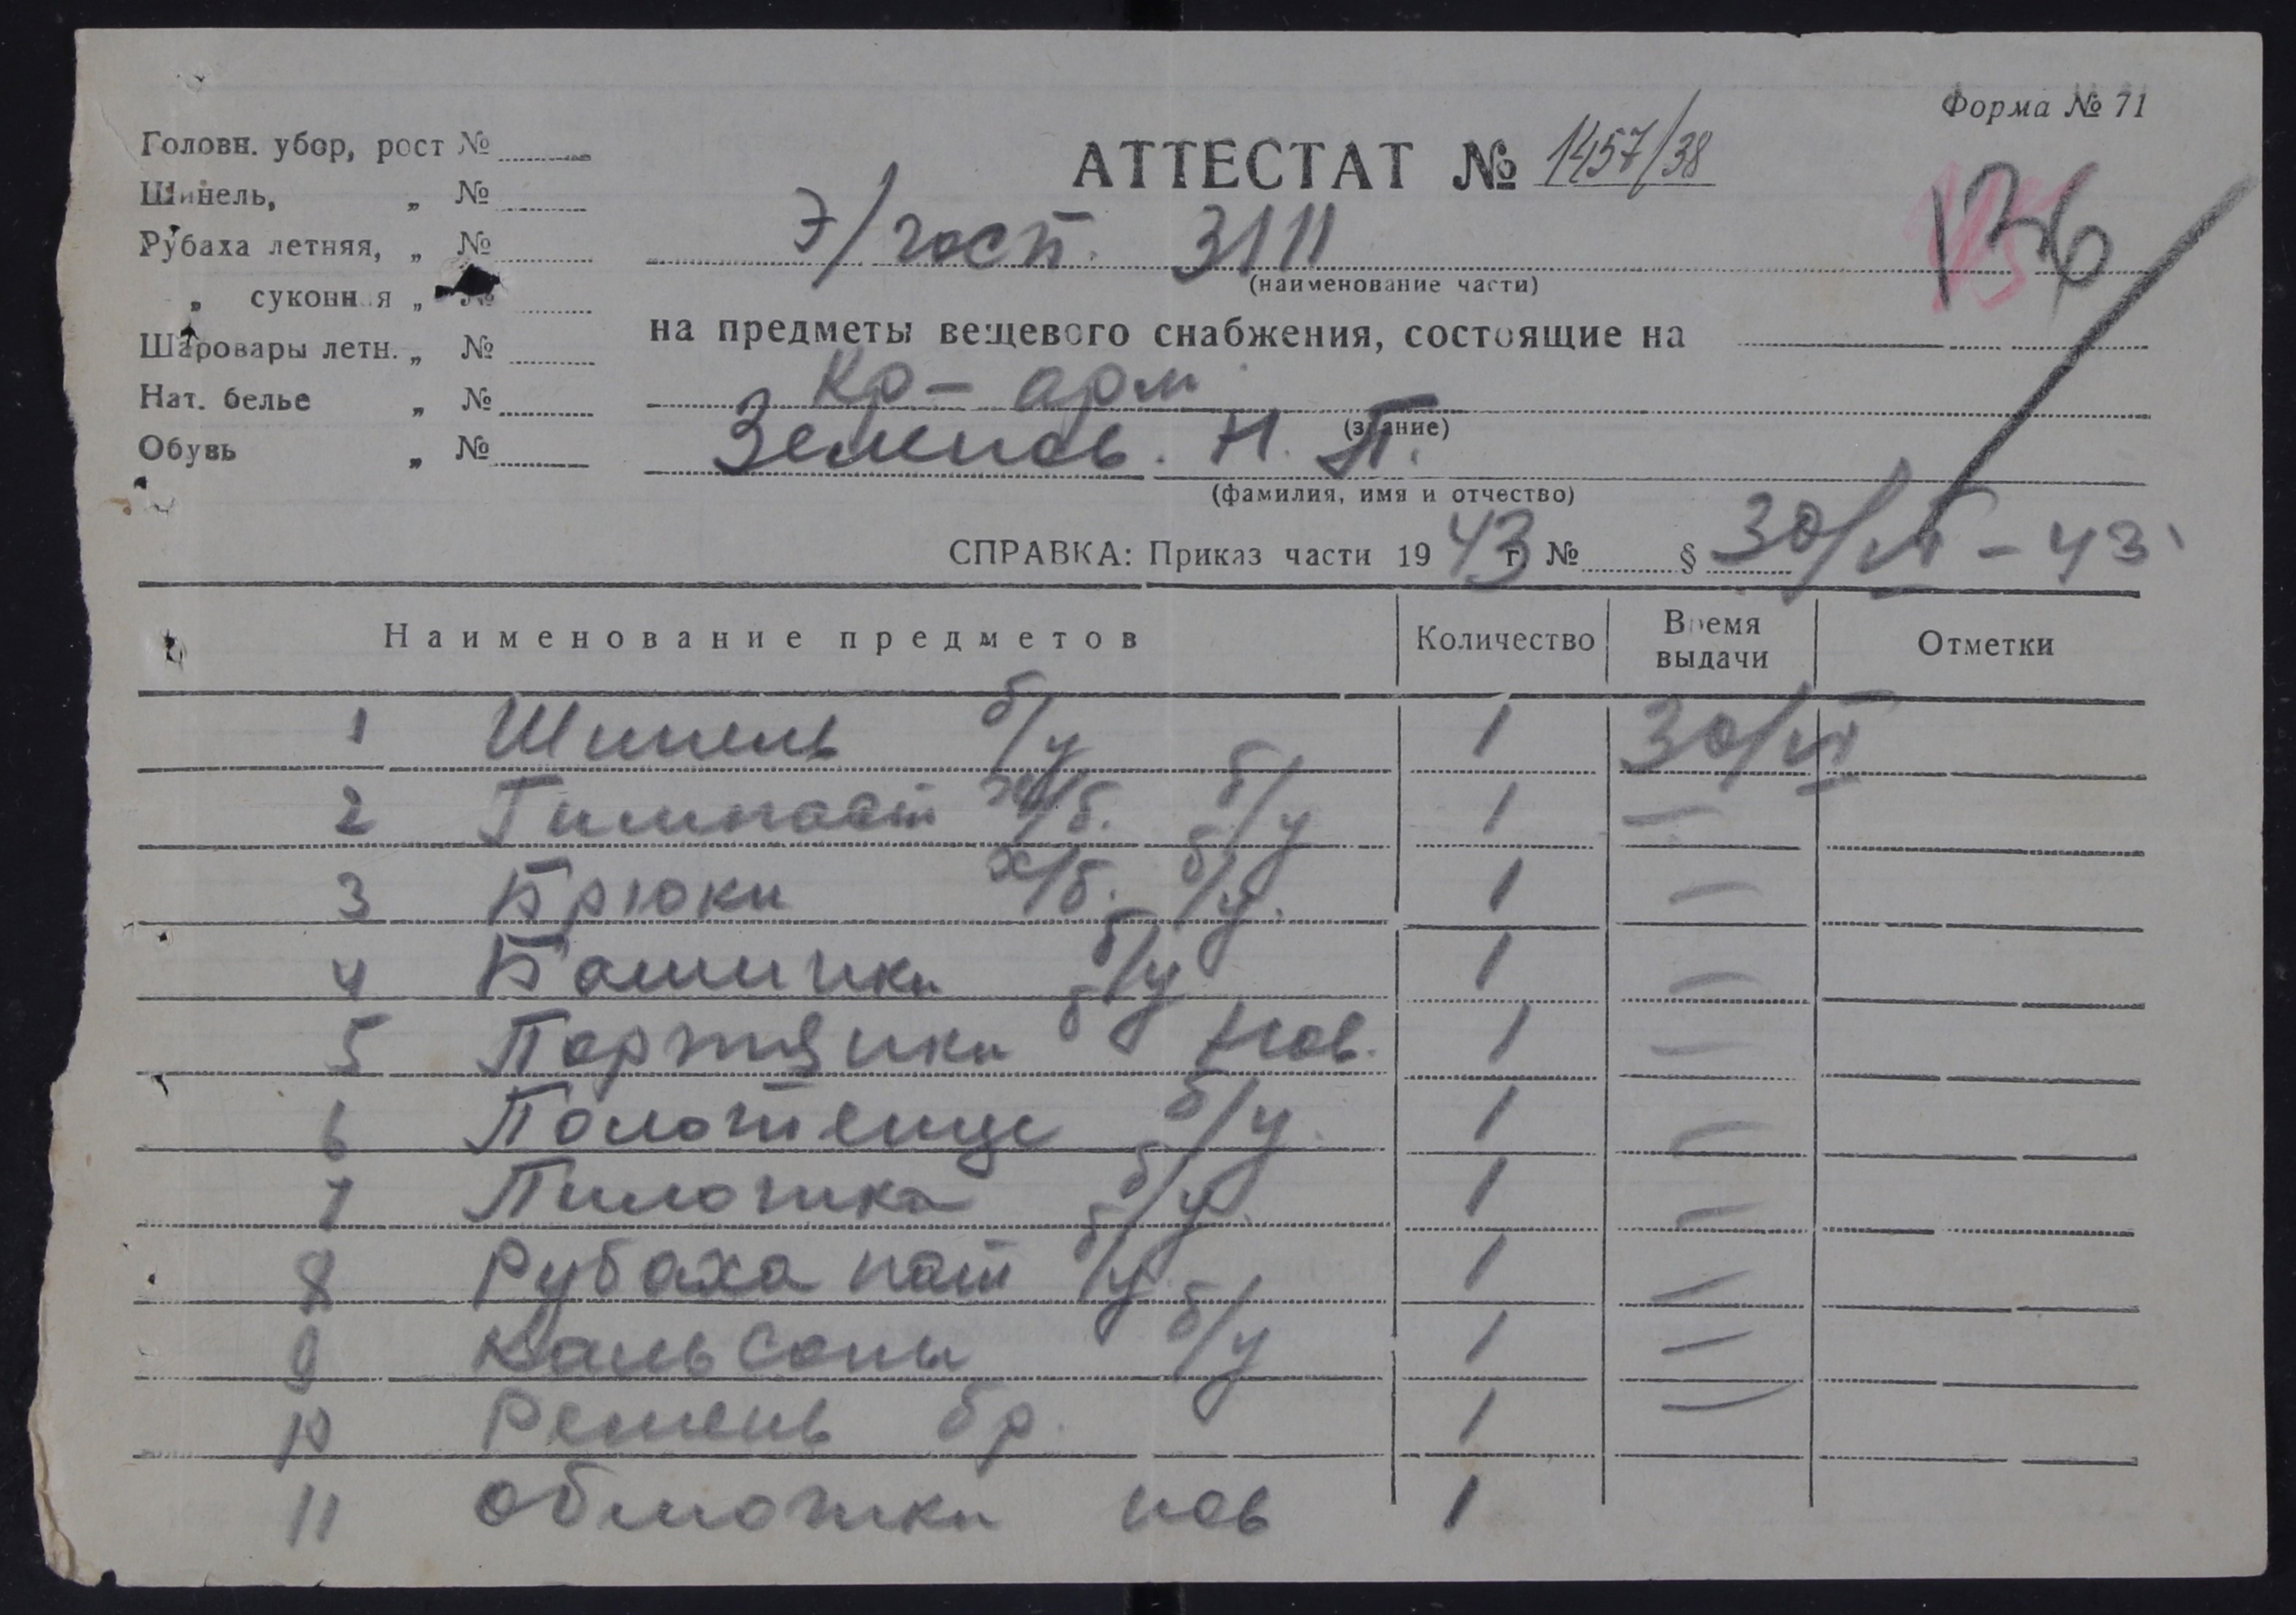 Форма № 71
Головн. убор, рост №
Шинель, „ №
Рубаха летняя, „ №
„ суконная „ №
Шаровары летн. „ №
Нат. белье „ №
Обувь „ №
АТТЕСТАТ № 1457/38
136
Э/госп. 3111
(наименование части)
на предметы вещевого снабжения, состоящие на
Кр-арм
(звание)
Н. П.
(фамилия, имя и отчество)
СПРАВКА: Приказ части 1943 г. № § 30/VI - 43
Наименование предметов Количество Время выдачи Отметки
1 Шинель б/у 1 30/VI
2 Гимнаст х/б. б/у 1 —
3 Брюки х/б. б/у. 1 —
4 Ботинки б/у 1 —
5 Портянки б/у нов. 1 —
6 Полотенце б/у. 1 —
7 Пилотка б/у. 1 —
8 Рубаха нат б/у 1 —
9 Кальсоны б/у 1 —
10 Ремень бр. 1 —
11 Обмотки нов 1